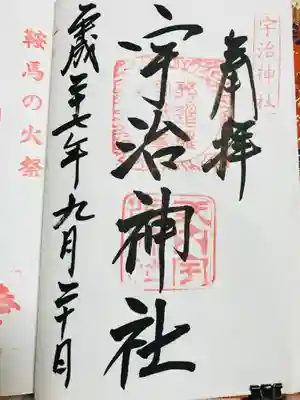 宇治神社
奉拝
宇治神社
平成二十七年九月二十日
鞍馬の火祭